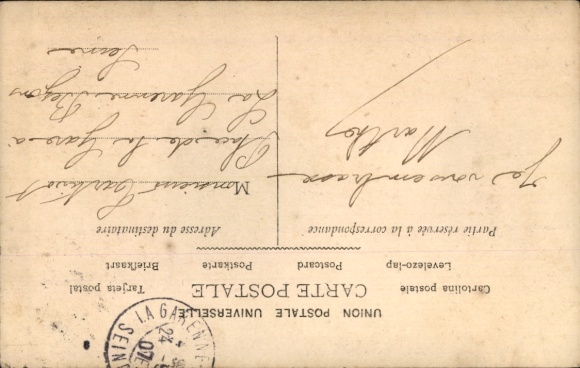 UNION POSTALE UNIVERSELLE
CARTE POSTALE
Cartolina postale
Tarjeta postal
Levelezo-lap
Postcard
Postkarte
Briefkaart
Partie réservée à la correspondance
Adresse du destinataire
Je vous embrasse
Marthe
Monsieur
Place de la Gare à
La Garenne Bezons
Seine
LA GARENNE
SEINE
24
07